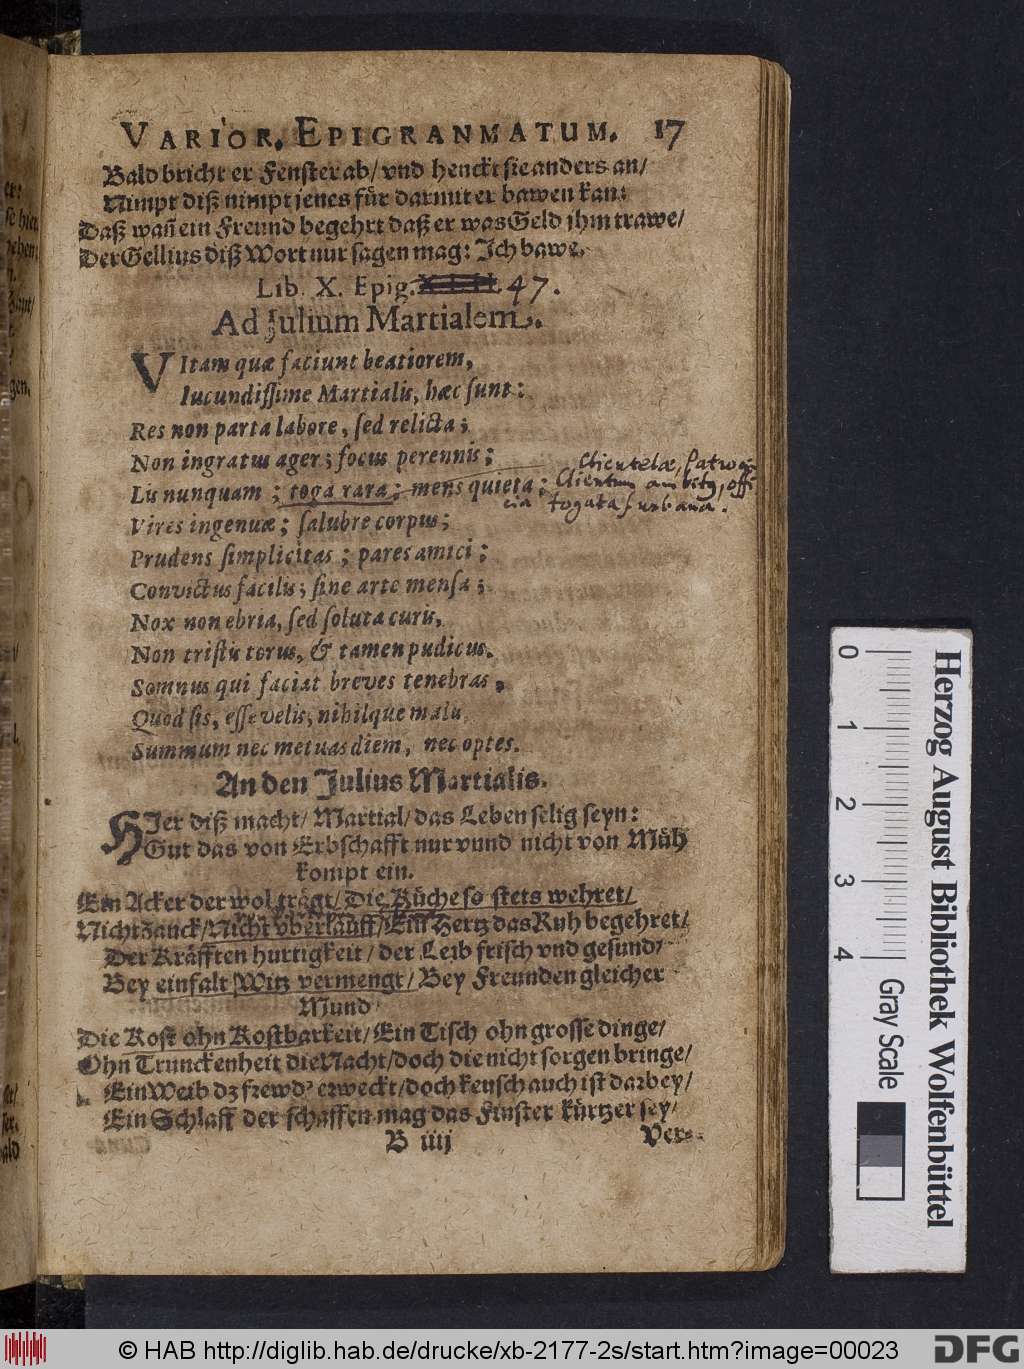 VARIOR. EPIGRANMATUM. 17
Bald bricht er Fenster ab/ vnd henckt sie anders an/
Nimpt diß nimpt jenes für darmit er bawen kan:
Daß wañ ein Freund begehrt daß er was Geld ihm trawe/
Der Gellius diß Wort nur sagen mag: Ich bawe.
Lib. X. Epig. 47.
Ad Julium Martialem.
VItam quæ faciunt beatiorem,
Iucundissime Martialis, hæc sunt:
Res non parta labore, sed relicta;
Non ingratus ager; focus perennis;
Lis nunquam; toga rara; mens quieta;
Clientelæ, Patroci
Clientum ambitq, offi
cia togata s. urbana.
Vires ingenuæ; salubre corpus;
Prudens simplicitas; pares amici;
Convictus facilis; sine arte mensa;
Nox non ebria, sed soluta curis,
Non tristis torus, & tamen pudicus.
Somnus qui faciat breves tenebras,
Quod sis, esse velis, nihilque malis,
Summum nec metuas diem, nec optes.
An den Julius Martialis.
HIer diß macht/ Martial/ das Leben selig seyn:
Gut das von Erbschafft nur vund nicht von Müh
kompt ein.
Ein Acker der wol trägt/ Die Küche so stets wehret/
Nicht Zanck/ Nicht vberlauff/ Ein Hertz das Ruh begehret/
Der Kräfften hurtigkeit/ der Leib frisch vnd gesund/
Bey einfalt Witz vermengt/ Bey Freunden gleicher
Mund
Die Kost ohn Kostbarkeit/ Ein Tisch ohn grosse dinge/
Ohn Trunckenheit die Nacht/ doch die nicht sorgen bringe/
Ein Weib dz frewd' erweckt/ doch keusch auch ist darbey/
Ein Schlaff der schaffen mag das Finster kürtzer sey/
B iiij
Ver-
0 1 2 3 4
Herzog August Bibliothek Wolfenbüttel
Gray Scale
© HAB http://diglib.hab.de/drucke/xb-2177-2s/start.htm?image=00023
DFG